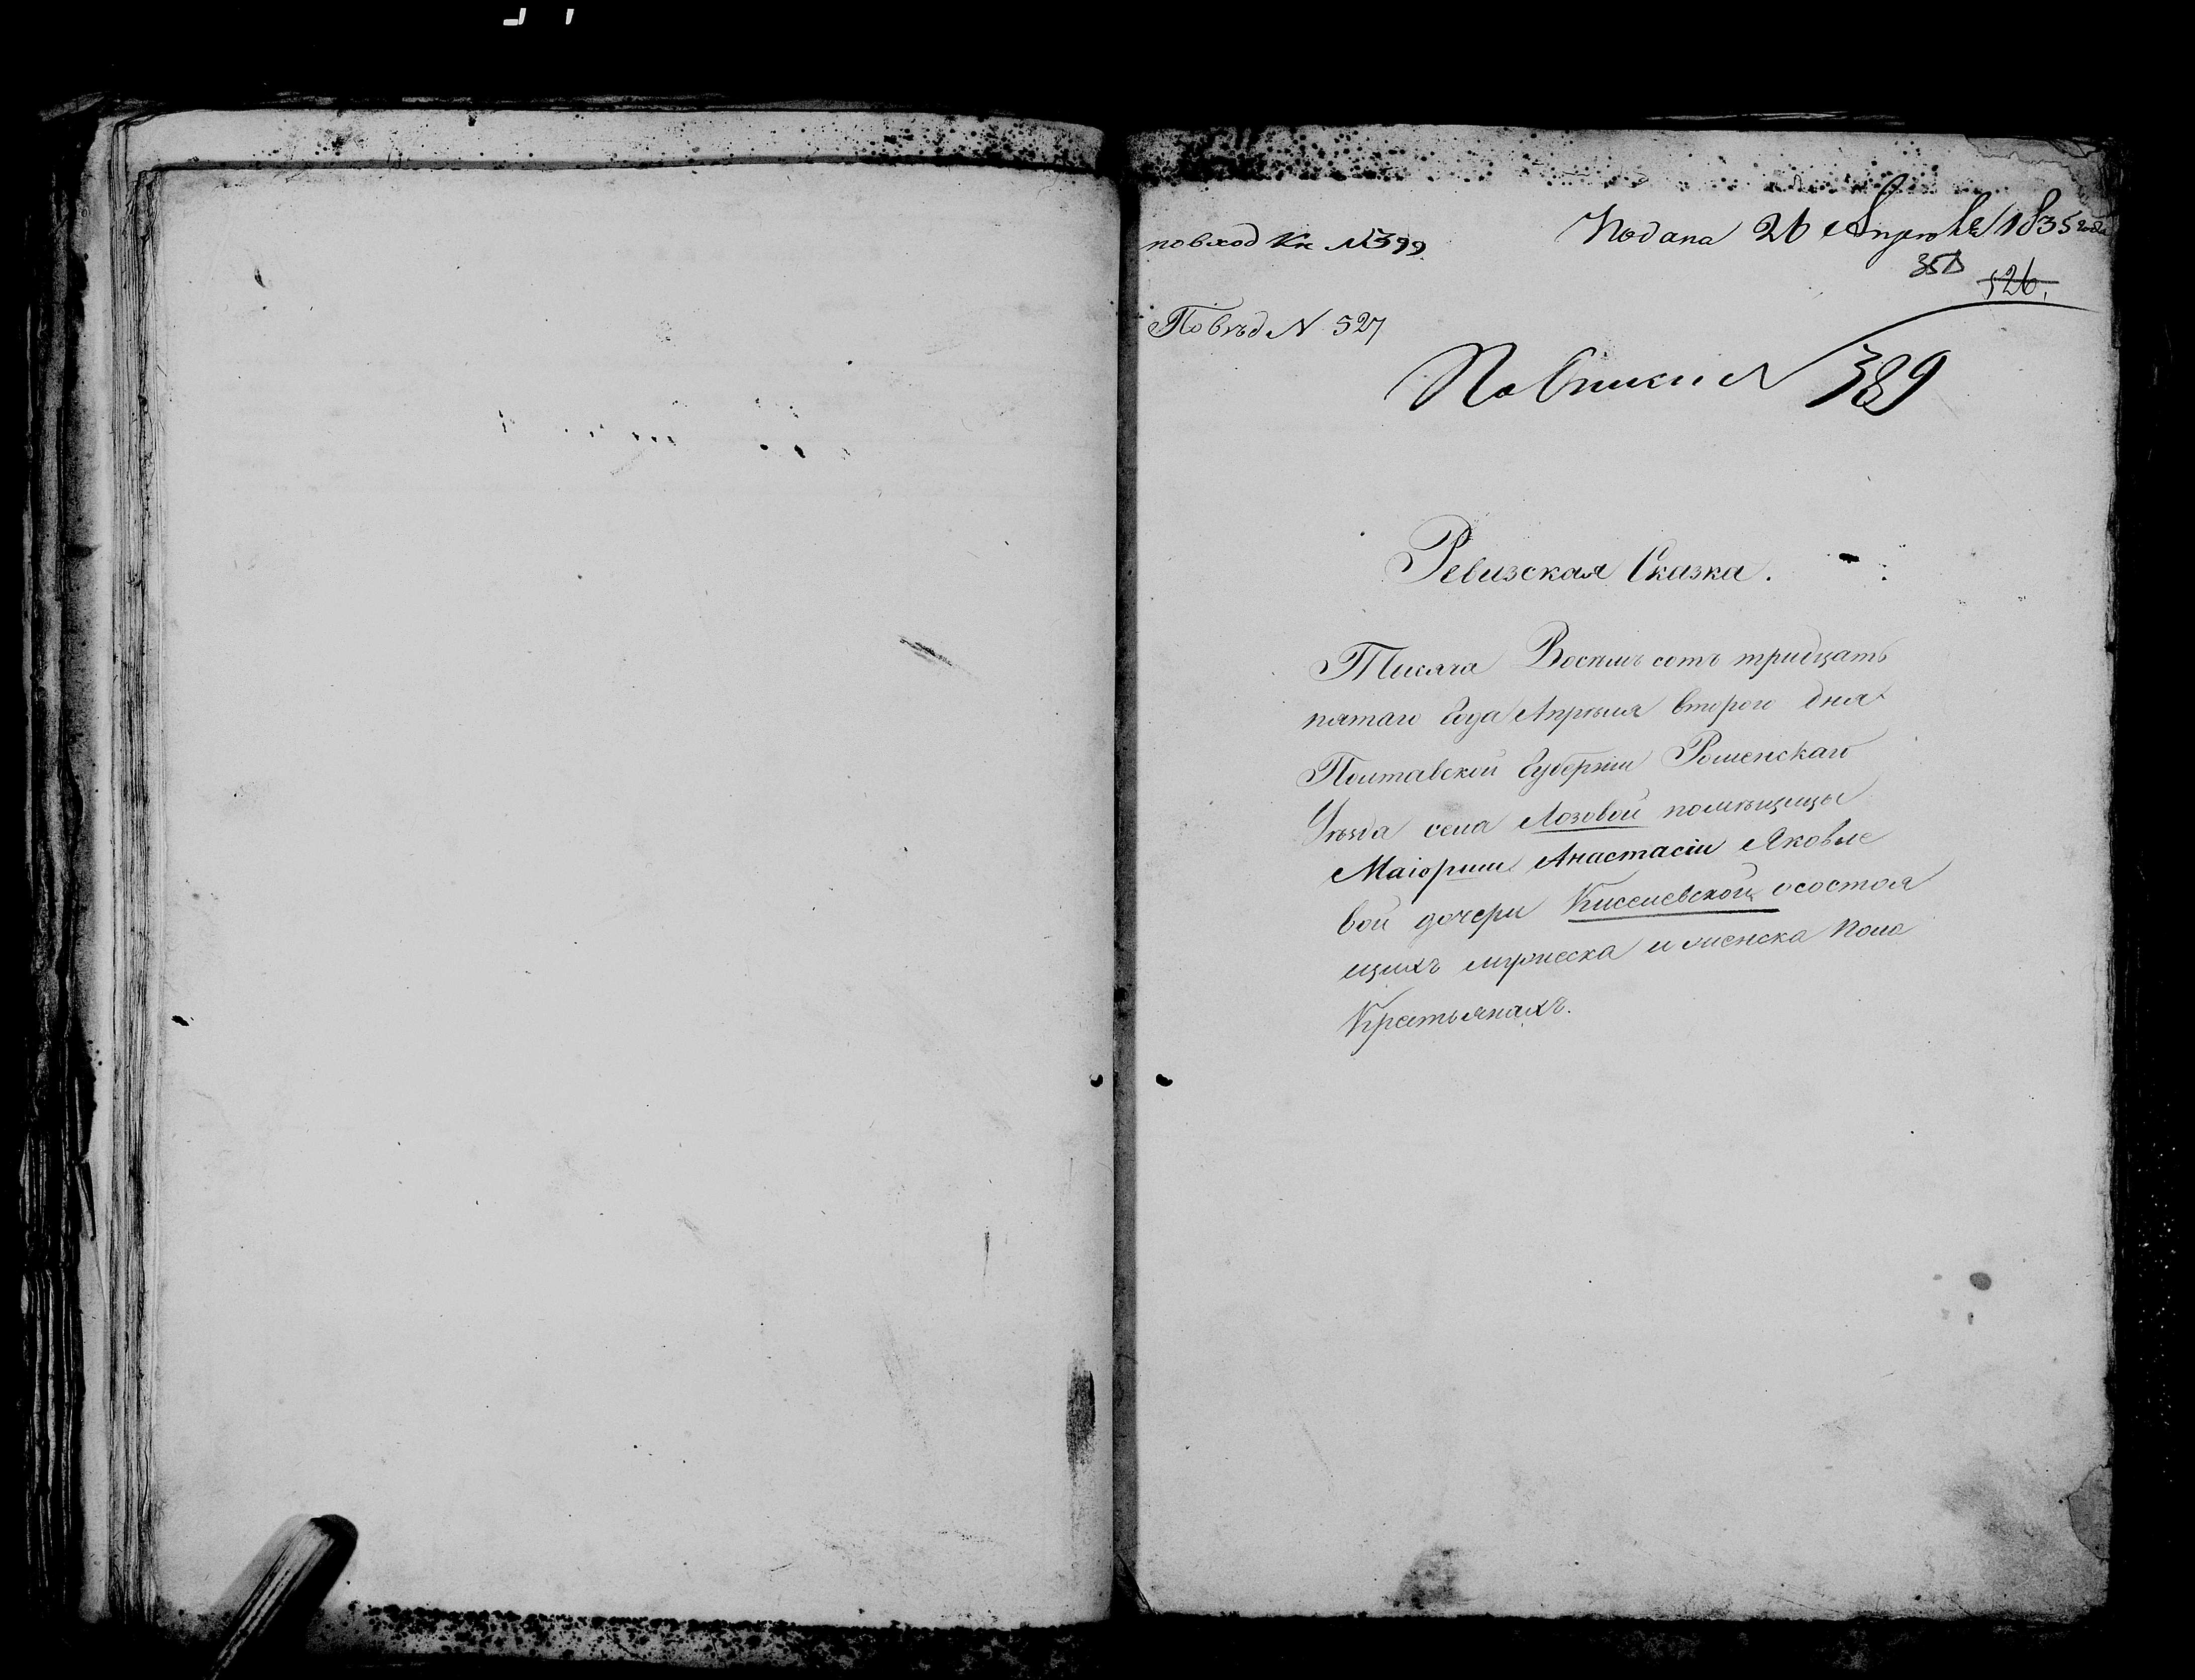 по вход Кн №399
Подана 26 Апреля 1835 года
351
526.
По вѣд № 527
По Описи № 389
Ревизская Сказка.
Тисяча Восемь сотъ тридцать
пятаго Года Апрѣля второго дня
Полтавской Губерніи Роменскаго
Уѣзда села Лозовой помѣщицы
Маіорши Анастасіи Яковле
вой дочери Киселевской осостоя
щихъ мужеска и женска пола
Крестьянахъ.